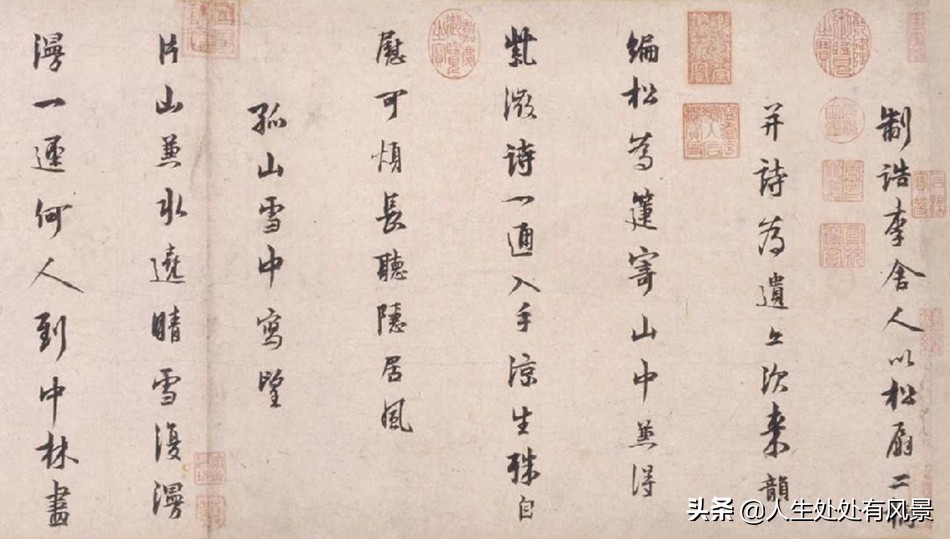 制誥李舍人以松扇二柄
并詩為遺亦次來韻
編松為箑寄山中兼得
紫微詩一通入手涼生殊自
慰可煩長聽隱居風
孤山雪中寫望
片山兼水遶晴雪復漫
漫一逕何人到中林盡
头条 @人生处处有风景